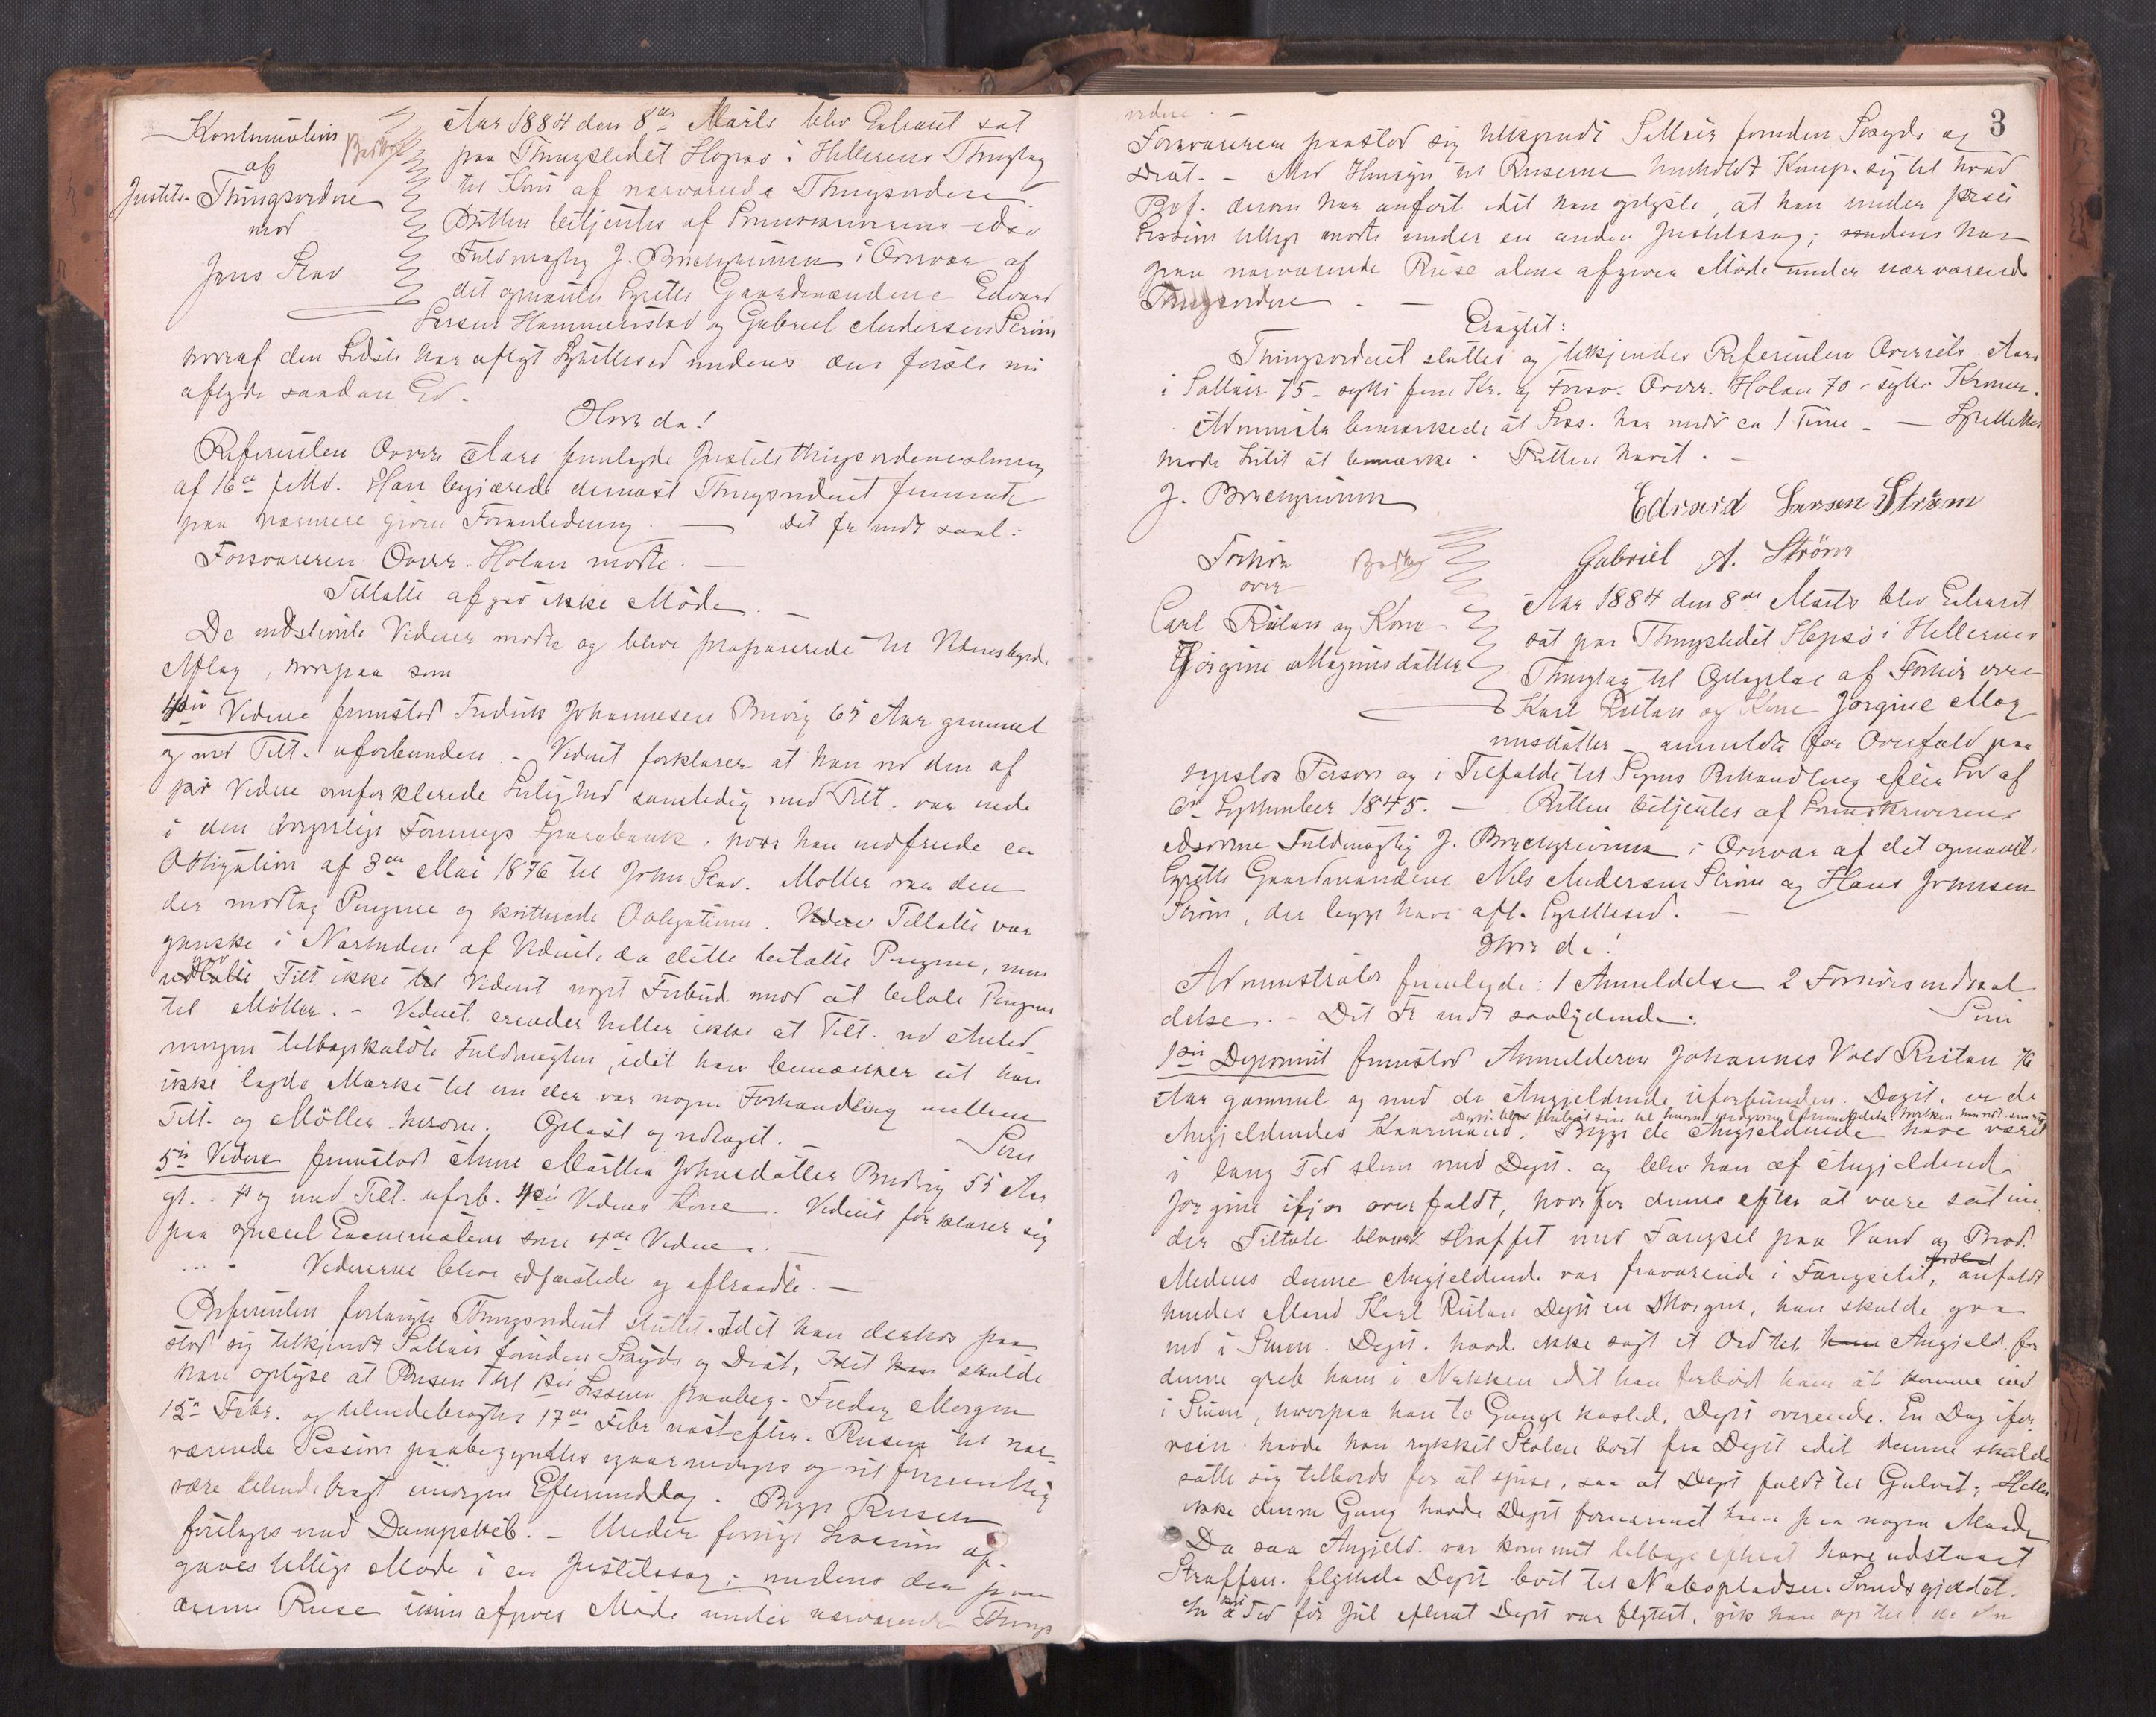 Kontinuation
af
Justits- Thingsvidne
mod
Jens Stav
Aar 1884 den 8de Marts blev Extraret sat
paa Thingstedet Hopsø i Hellerens Thinglag
til Kont. af nærværende Thingsvidne.
Retten betjentes af Sorenskriverens edsv.
Fuldmægtig J. Brechgrimm i Overvær af
det opnævnte Lagrette Gaardmændene Edvard
Larsen Hammerstad og Gabriel Andersen Strøm
hvoraf den Sidste har aflagt Lagrettesed medens den første nu
aflagde saadan Ed.
Hvor da!
Referenten Overr. Aars fremlagde Justitsthingsvidneudtagning
af 16de f. Md. Han begjærede dernæst Thingsvidnet fremmet
paa nærmere given Foranledning. — Det fr. indt. saal:
Forsvareren Overr. Holan mødte. —
Tiltalte afgav ikke Møde. —
De indstevnte Vidner mødte og bleve præparerede til Vidnesbyrds
Aflæg, hvorpaa som
4de Vidne fremstod Fredrik Johannesen Buvig 65 Aar gammel
og med Tilt. uforbunden. - Vidnet forklarer at han ved den af
3die Vidne omforklarede Leilighed samtidig med Tilt. var inde
i den Sparebank, hvor han indfriede en
Obligation af 3die Mai 1876 til John Stav. Møller var den
der modtog Pengene og kvitterede Obligationen. Tiltalte var
ganske i Nærheden af Vidnet, da dette betalte Pengene, men
gav Tilt. ikke Vidnet noget Forbud mod at betale Pengene
til Møller. - Vidnet erindrer heller ikke at Tilt. ved Anled-
ningen tilbagekaldte Fuldmagten, idet han bemærker at han
ikke lagde Mærke til om der var nogen Forhandling mellem
Tilt. og Møller herom. Oplæst og vedtaget. -
Som
5te Vidne fremstod Anne Martha Johnsdatter Buvig 55 Aar
gl. og med Tilt. uforb. 4de Vidnes Kone. Vidnet forklarer sig
paa specicel Examination som 4de Vidne. —
Vidnerne bleve edfæstede og aftraadte. —
Referenten forlangte Thingsvidnet sluttet. Idet han derhos paa-
stod sig tilkjendt Sallair foruden Skyds og Diæt, skulde
han oplyse at Reisen til 1ste Session paabeg. Fredag Morgen
15de Febr. og tilendebragtes 17de Febr. næstefter. Reisen til nær-
værende Session paabegyndtes igaarmorges og vil formentlig
være tilendebragt imorgen Eftermiddag. Begge Reiser
foretages med Dampskib. - Under forrige Session af-
gaves tillige Møde i en Justitssag; medens der paa
denne Reise kun afgives Møde under nærværende Things-
vidne. -
3
Forsvareren paastod sig tilkjendt Sallair foruden Skyds og
Diæt. - Med Hensyn til Reiserne henholdt Komp. sig til hvad
Ref. derom har anført idet han oplyste, at han under første
Session tillige mødte under en anden Justitssag; medens han
paa nærværende Reise alene afgiver Møde under nærværende
Thingsvidne. —
Eragtet:
Thingsvidnet sluttes og tilkjendes Referenten Overrets. Aars
i Sallair 75 - sytti fem Kr. og Forsv. Overr. Holan 70 - sytti Kroner.
Administr. bemærkede at Sess. har medt. ca 1 Time. — Lagrettet
havde Intet at bemærke. Retten hævet. -
J. Brechgrimm
Edvard Larsen Strøm
Gabriel A. Strøm
Forhør
over
Carl Ritan og Kone
Jørgine Magnusdatter
Aar 1884 den 8de Marts blev Extraret
sat paa Thingstedet Hopsø i Hellerens
Thinglag til Optagelse af Forhør over
Karl Ritan og Kone Jørgine Mag
nusdatter - anmeldte for Overfald paa
sagesløs Person og i Tilfælde til Sagens Behandling efter Lov af
6te September 1845. — Retten betjentes af Sorenskriverens
edsvorne Fuldmægtig J. Brechgrimm i Overvær af det opnævnte
Lagrette Gaardmændene Nils Andersen Strøm og Hans Johnsen
Strøm, der begge have afl. Lagrettesed. -
Hvor da!
Administrator fremlagde: 1 Anmeldelse 2 Forhørsindkal-
delse. - Det Fr. indt. saalydende:
Som
1ste Deponent fremstod Anmelderen Johannes Ritan 76
Aar gammel og med de Angjeldende uforbunden. Depst. er de
Angjeldendes Kaarmand. Begge de Angjeldende have været
i lang Tid slem mod Depst. og blev han af Angjeldende
Jørgine ifjor overfaldt, hvorfor denne efter at være sat un-
der Tiltale blev straffet med Fængsel paa Vand og Brød.
Medens denne Angjeldende var fraværende i Fængselet, anfaldt
hendes Mand Karl Ritan Depst en Morgen, han skulde gaa
ind i Stuen. Depst. havde ikke sagt et Ord til Angjeld. før
denne greb ham i Nakken idet han forbød ham at komme ind
i Stuen, hvorpaa han to Gange kasted, Depst overende. En Dag ifor-
veien havde han rykket Stolen bort fra Depst idet denne skulde
sætte sig tilbords for at spise, saa at Depst faldt til Gulvet; Heller
ikke denne Gang havde Depst fornærmet ham paa nogen Maade
Da saa Angjeld. var kommet tilbage efterat have udstaaet
Straffen, flyttede Depst bort til Nabopladsen Sundsgjældet.
Tid før Jul efterat Depst var flyttet, gik han op til de An